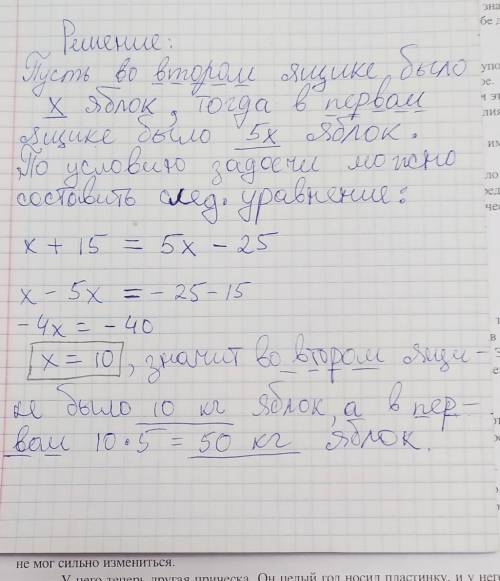 Решение:
Пусть во втором ящике было
х яблок, тогда в первом
ящике было 5х яблок.
По условию задачи можно
составить след. уравнение:
х + 15 = 5х - 25
х - 5х = - 25 - 15
-4х = - 40
х = 10, значит во втором ящи-
ке было 10 кг яблок, а в пер-
вом 10·5 = 50 кг яблок.
не мог сильно измениться.
У него теперь другая прическа. Он целый год носил пластинку, и у него